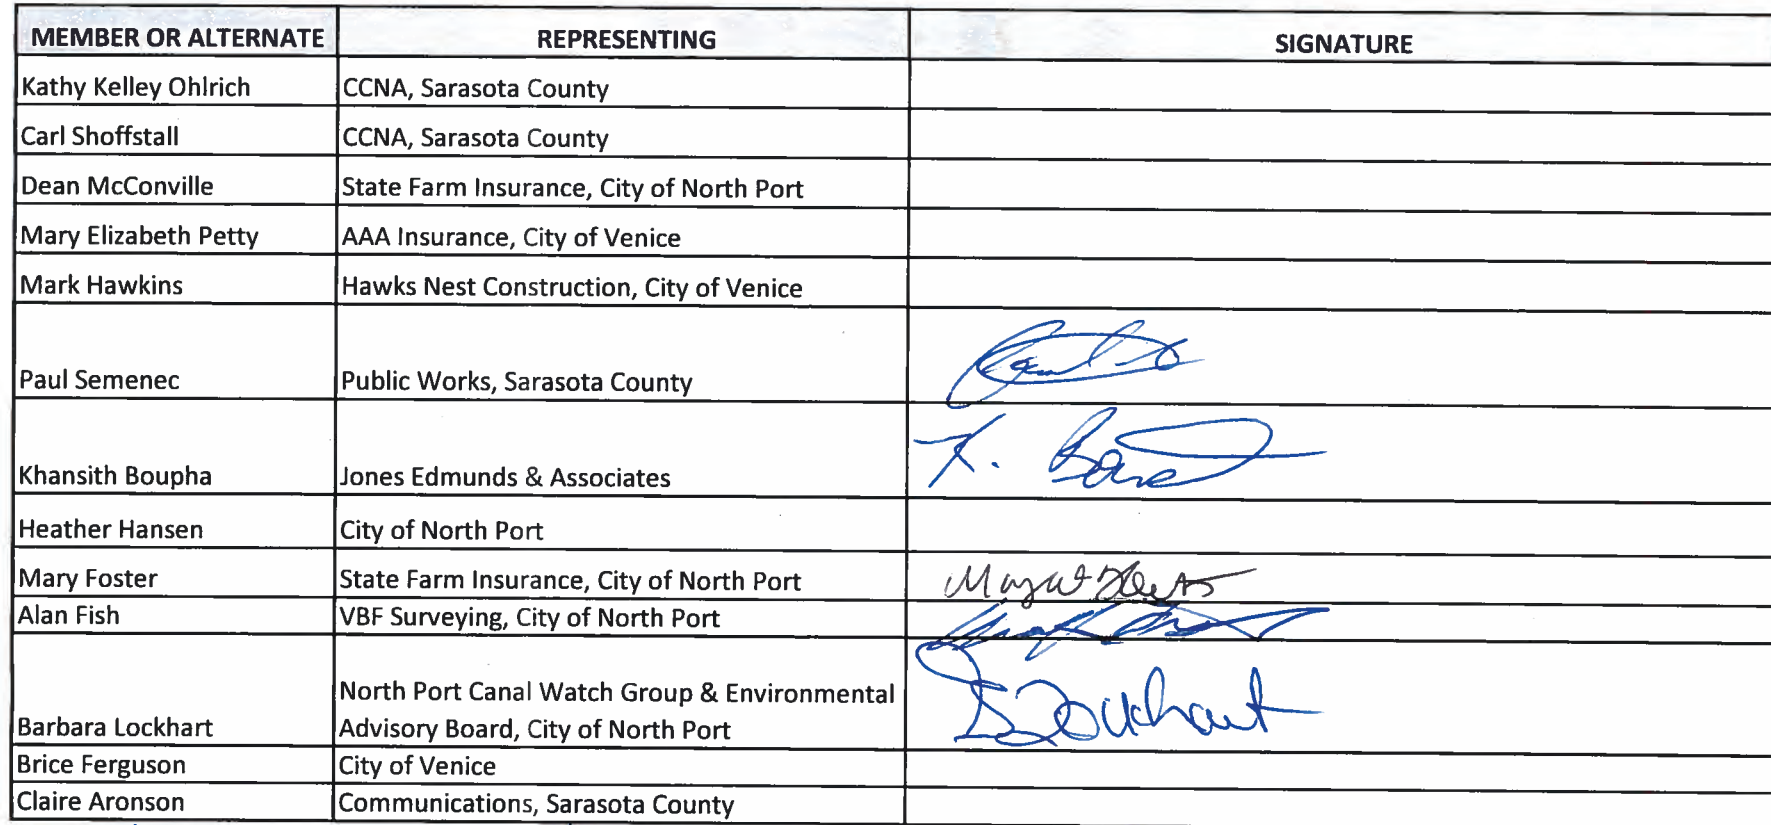 MEMBER OR ALTERNATE REPRESENTING SIGNATURE
Kathy Kelley Ohlrich CCNA, Sarasota County
Carl Shoffstall CCNA, Sarasota County
Dean McConville State Farm Insurance, City of North Port
Mary Elizabeth Petty AAA Insurance, City of Venice
Mark Hawkins Hawks Nest Construction, City of Venice
Paul Semenec Public Works, Sarasota County
Khansith Boupha Jones Edmunds & Associates K.
Heather Hansen City of North Port
Mary Foster State Farm Insurance, City of North Port
Alan Fish VBF Surveying, City of North Port
North Port Canal Watch Group & Environmental
Barbara Lockhart Advisory Board, City of North Port Lockhart
Brice Ferguson City of Venice
Claire Aronson Communications, Sarasota County